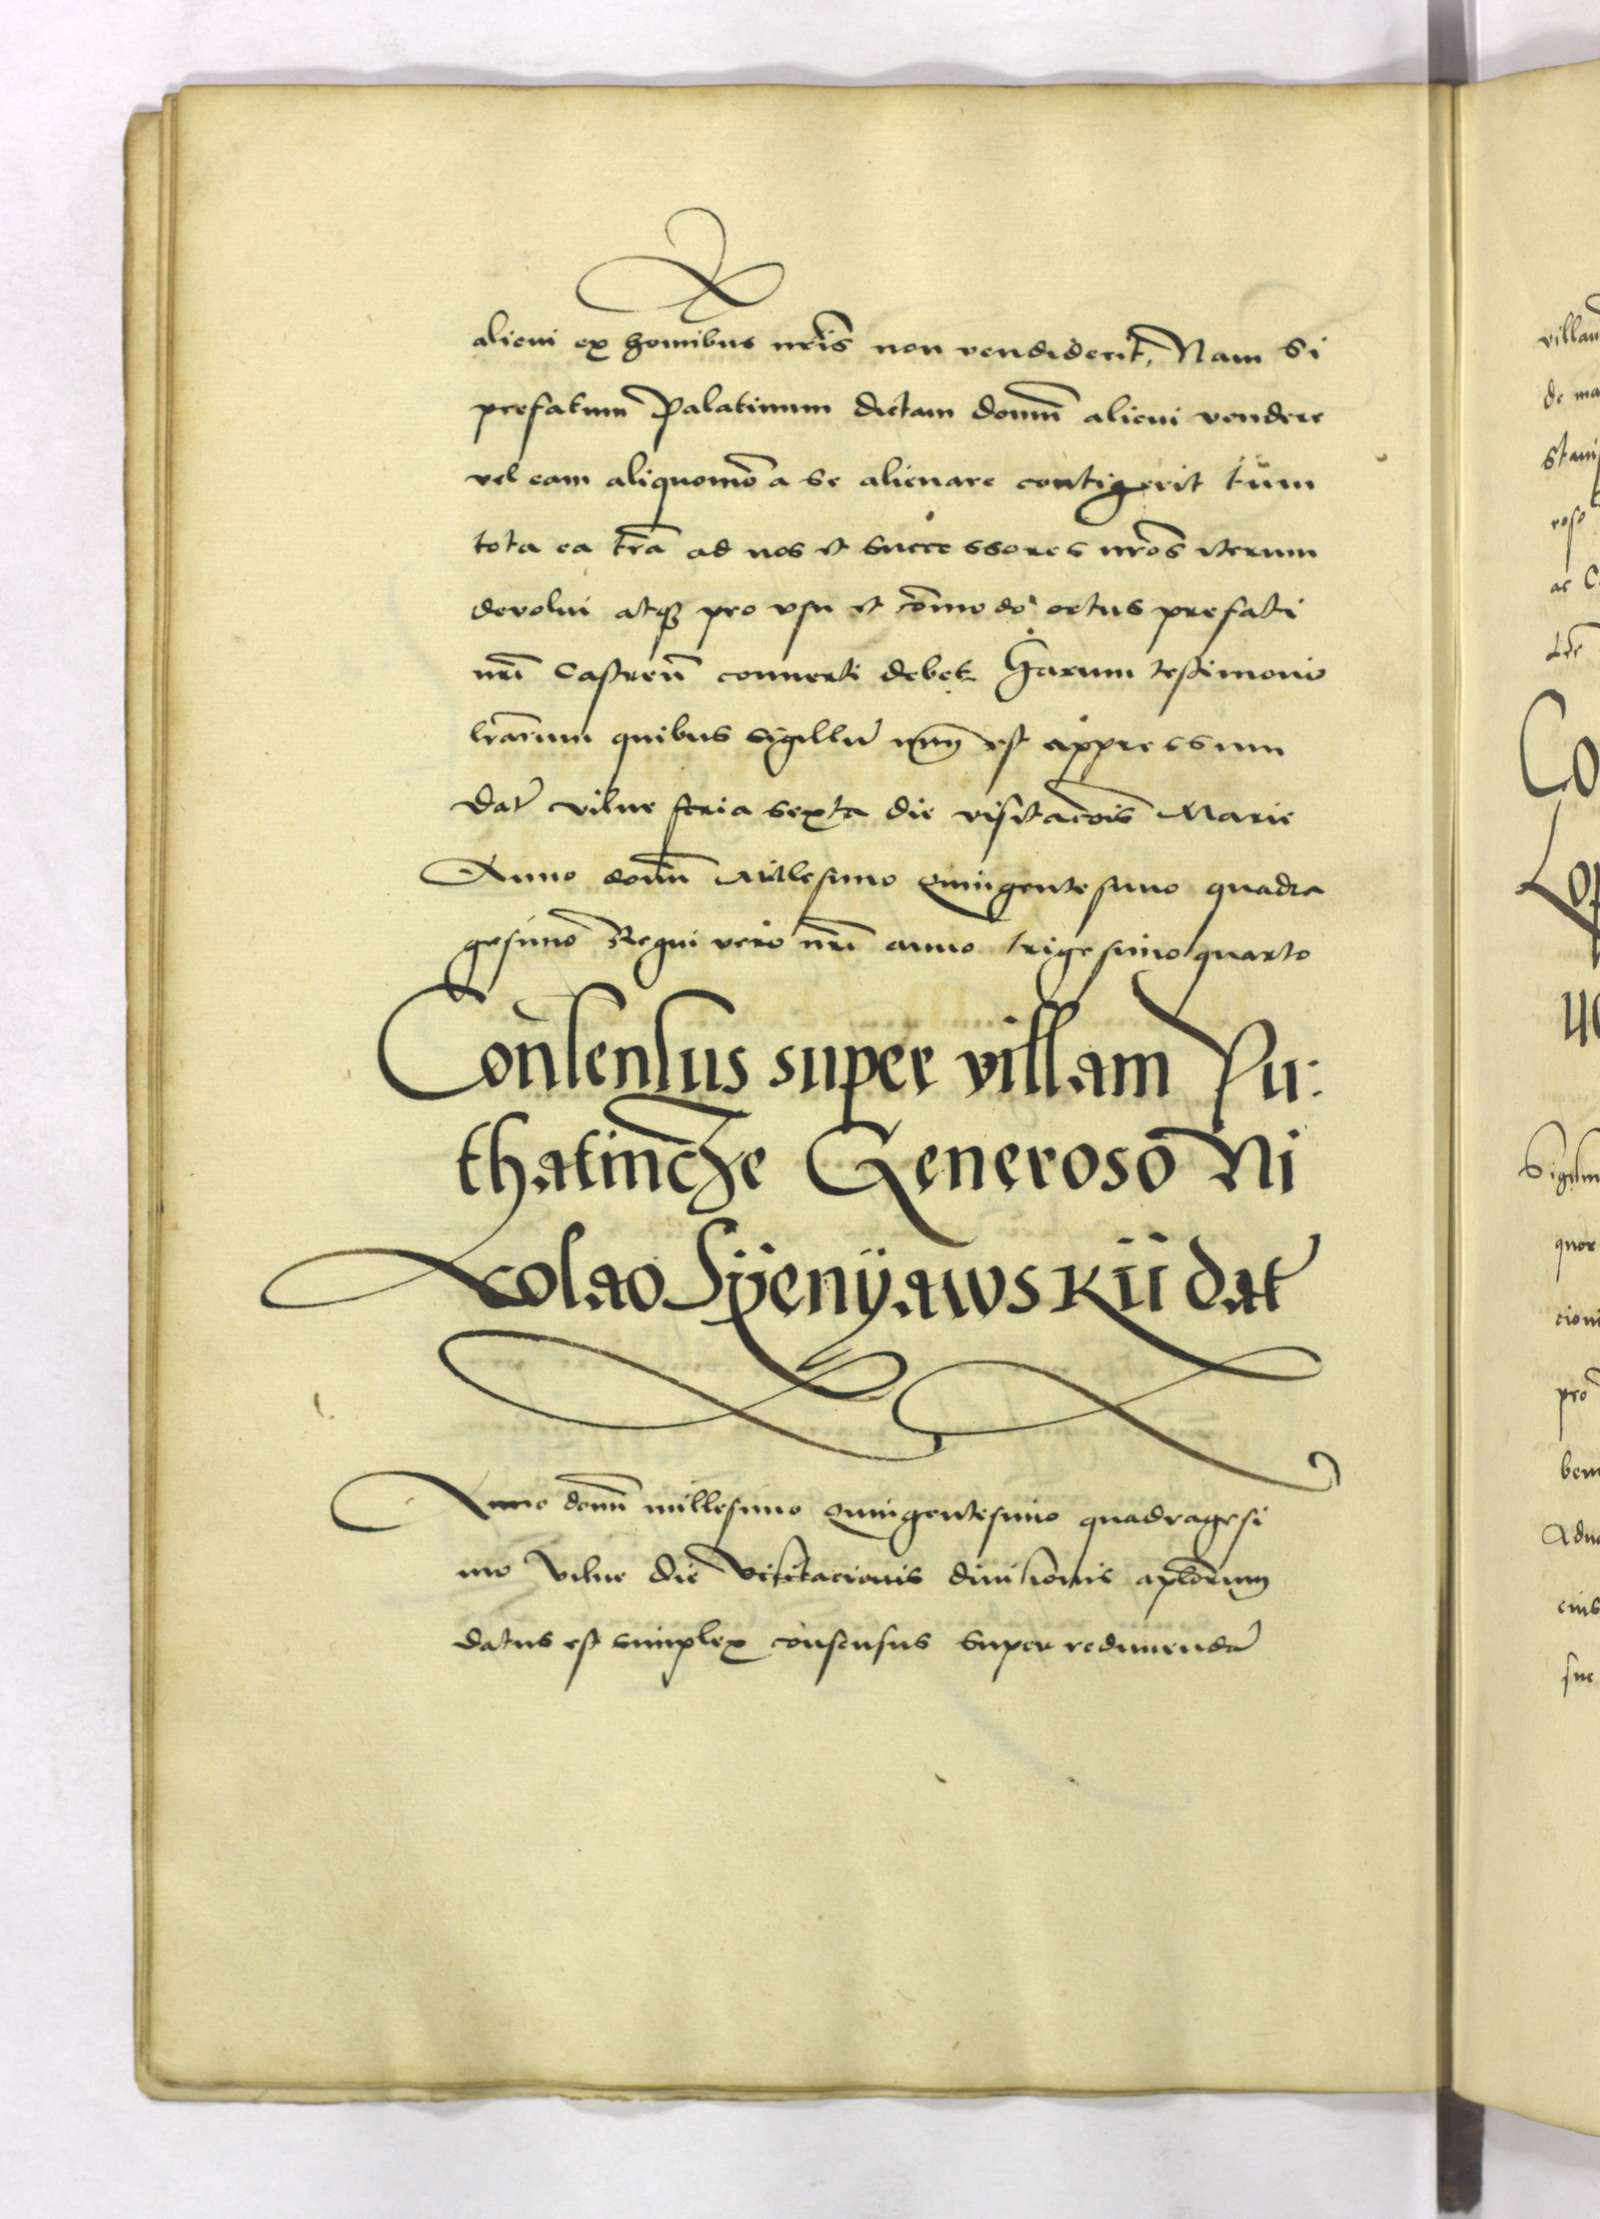 alicui ex homibus nr̃is non vendiderit, Nam Si
prefatum Palatinum dictam domũ alicui vendere
vel eam aliquomõ a se alienare contigerit tum
tota ea tr̃a ad nos et successores nr̃os iterum
devolui atq3 pro vsu et cõmodo ortus prefati
nr̃i Castreñ conuerti debet Harum testimonio
lr̃arum quibus sigillũ nr̃m est appressum
Dat̃ vilne feria sexta die visitacõis Marie
Anno domĩ Millesimo quingentesimo quadra
gesimo Regni vero nr̃i anno trigesimo quarto
Consensus super villam Pu:
thatincze Generoso Ni
colao Syenyawskii dat̃
Anno domĩ millesimo quingentesimo quadragesi
mo Vilne die Visitacionis diuisionis aplõrum
datus est simplex consensus super redimendã
villam
de
Co
Sigism
quor
cioni
pro